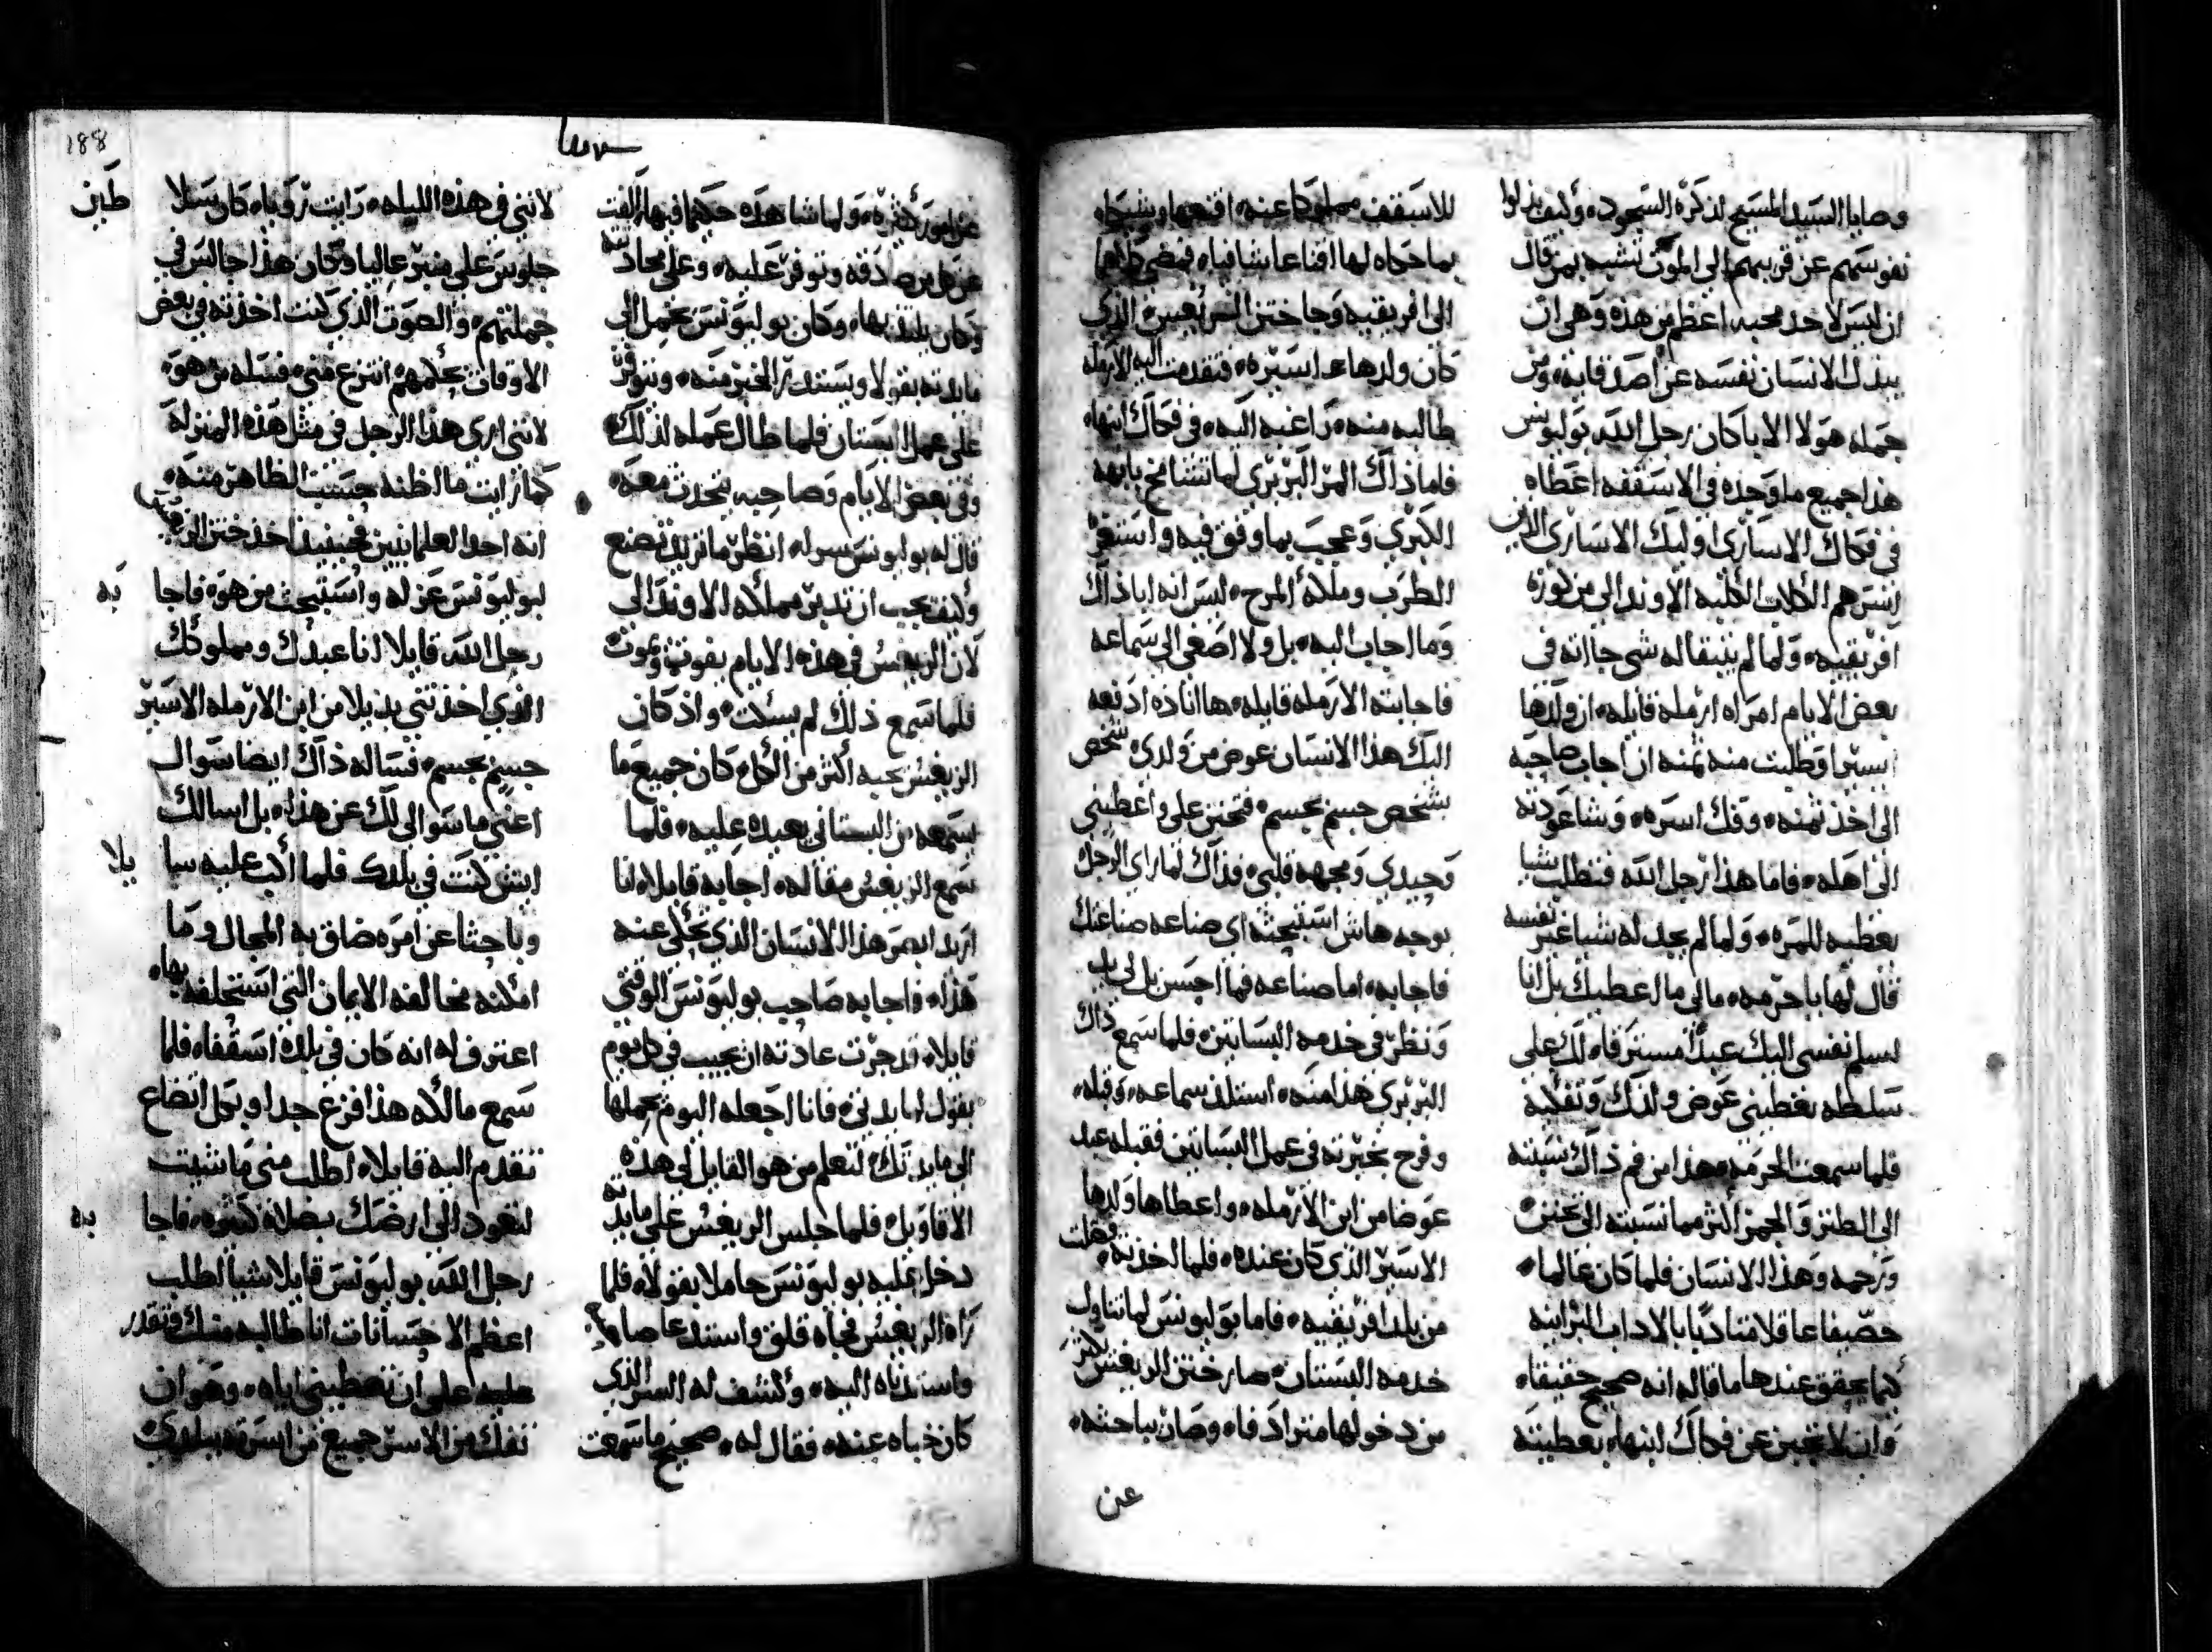 وصايا السيد المسيح لذكره السجود، وكيف بذلوا
نفوسهم عن قريبهم الى الموت تشبه بمن قال
ان ليس لاحد محبه اعظم من هذه وهى ان
يبذل الانسان نفسه عن اصدقايه، ومن
جمله هولا الابا كان رجل الله بوليونس
هذا جميع ما وجده فى الاسقفه اعطاه
فى فكاك الاسارى اوليك الاسارى الذين
اسرهم الكلاب الكلبه الاوندالى من كورة
افريقيه، ولما لم يتبقا له شى جااته فى
بعض الايام امراه ارمله قايله، ان ولدها
اسيرا وطلبت منه ثمنه ان اجاب صاحبه
الى اخذ ثمنه، وفك اسره، وشا عودته
الى اهله، فاما هذا رجل الله فتطلب شيا
يعطيه للمره، ولما لم يجد له شيا غير نفسه
قال لها يا حرمه، مالى ما اعطيك بل انا
اسلم نفسى اليك عبدا مسترقا، لك على
سلطه تعطينى عوض ولدك وتفكيه
فلما سمعت الحرمه هذا من فم ذاك نسبته
الى الطنز والمجهز اكثر مما نسبته الى تحنن
ورحمه وهذا الانسان فلما كان عالما،
حصيفا عاقلا متاديا بالاداب البرانيه
كيما يحقق عندها ما قاله انه صحيح حقيقا،
وان لا تجبن عن فكاك ابنها، بعطيته
للاسقف مملوكا عنه، اقنعها وشيكاه
بما حكاه لها اقناعا شافيا، فمضى كلاهما
الى افريقيه وجا ختن الريغس الذى
كان ولدها عند اسيره، فتقدمت اليه الارمله
طالبه منه، راغبه اليه، فى فكاك ابنها،
فاما ذاك المر البربرى لما تشامخ بابهه
الكبرى وعجب بما وفق فيه واستفز
الطرب وملاه المرح، ليس انه ابا ذاك
وما اجاب اليه، بل ولا اصغى الى سماعه
فاجابته الارمله قايله، ها انا ذه ادفعه
اليك هذا الانسان عوض من ولدى، شخص
بشخص جسم بجسم، فتحنن على واعطينى
وحيدى ومجهه قلبى، فذاك لما راى الرجل
بوجه هاش استبحثه اى صناعه صناعتك
فاجابه، اما صناعه فما احسن بل لى يد
ونظر فى خدمه البساتين، فلما سمع ذاك
البربرى هذا منه، استلذ سماعه، وقبله،
وفرح بخبرته فى عمل البساتين فقبله عبد
عوضا من ابن الارمله، واعطاها ولدها
الاسير الذى كان عنده، فلما اخذته رحلت
من بلد افريقيه، فاما بوليونس لما تناول
خدمه البستان، صار ختن الريغس يكثر
من دخولها مترادفا، وصار يباحثه،
عن
188
عن امور كثيره، ولما شاهده حكيما فيها الفت
عن كل من صادقه وتوفر عليه، وعلى محادثته
وكان يلتذ بها، وكان بوليونس يحمل الى
مايدته بقولا ويستند الخبز منه، ويتوفر
على عمل البستان فلما طال عمله لذلك
وفى بعض الايام وصاحبه يتحدث معه،
قال له بوليونس سر له انظر ما تريد تصنع
وكيف يجب ان تدبر مملكه الاوندالى
لان الريغس فى هذه الايام يفوت ويموت
فلما سمع ذلك لم يسكت، واذ كان
الريغس يحبه اكثر من الكل، كان جميع ما
يسمعه من البستانى يعيده عليه، فلما
سمع الريغس مقاله، اجابه قايلا، انا
اريد ابصر هذا الانسان الذى تحكى عنه
هذا، فاجابه صاحب بوليونس الوقتى
قايلا، قد جرت عادته ان يجيب فى كل يوم
بقول لمايدتى، فانا اجعله اليوم يحملها
الى مايدتك لتعلم من هو القايل لى هذه
الاقاويل، فلما جلس الريغس على مايدته
دخل عليه بوليونس حاملا بقولا، فلما
راه الريغس فجاه قلق واستدعا صاحبه
واستدناه اليه، وكشف له السر الذى
كان خباه عنه، فقال له، صحيح ما سمعت
لاننى فى هذه الليله، رايت رويا، كان سلاطين
جلوس على منبر عاليا، وكان هذا جالس فى
جملتهم، والصوت الذى كنت اخذته فى بعض
الاوقات بحكمهم انتزع منى، فسله من هو،
لاننى ارى هذا الرجل فى مثل هذه المنزله
كما رايت ما اظنه حسبت الظاهر منه،
انه احد العلمانيين فحينيذ اخذ ختن الريغس
لبوليونس عزله واستبحث من هو، فاجابه
رجل الله قايلا انا عبدك ومملوكك
الذى اخذتنى بديلا من ابن الارمله الاسير
جسم بجسم، فساله ذاك ايضا سوال
اعنى ما سوالى لك عن هذا، بل اسالك
ايش كنت فى بلدك فلما اكب عليه سايلا
وباحثا عن امره ضاق به المجال وما
امكنه مخالفه الايمان التى استحلفه بها،
اعترف له انه كان فى بلده اسقفا، فلما
سمع مالكه هذا فزع جدا وبكل اتضاع
تقدم اليه قايلا، اطلب منى ما شيت
لتعود الى ارضك بصلات كثيره، فاجابه
رجل الله بوليونس قايلا، شيا اطلب
اعظم الاحسانات انا طالبه منك وتقدر
عليه على ان تعطينى اياه، وهو ان
تفك من الاسر جميع من اسرته ببلدى